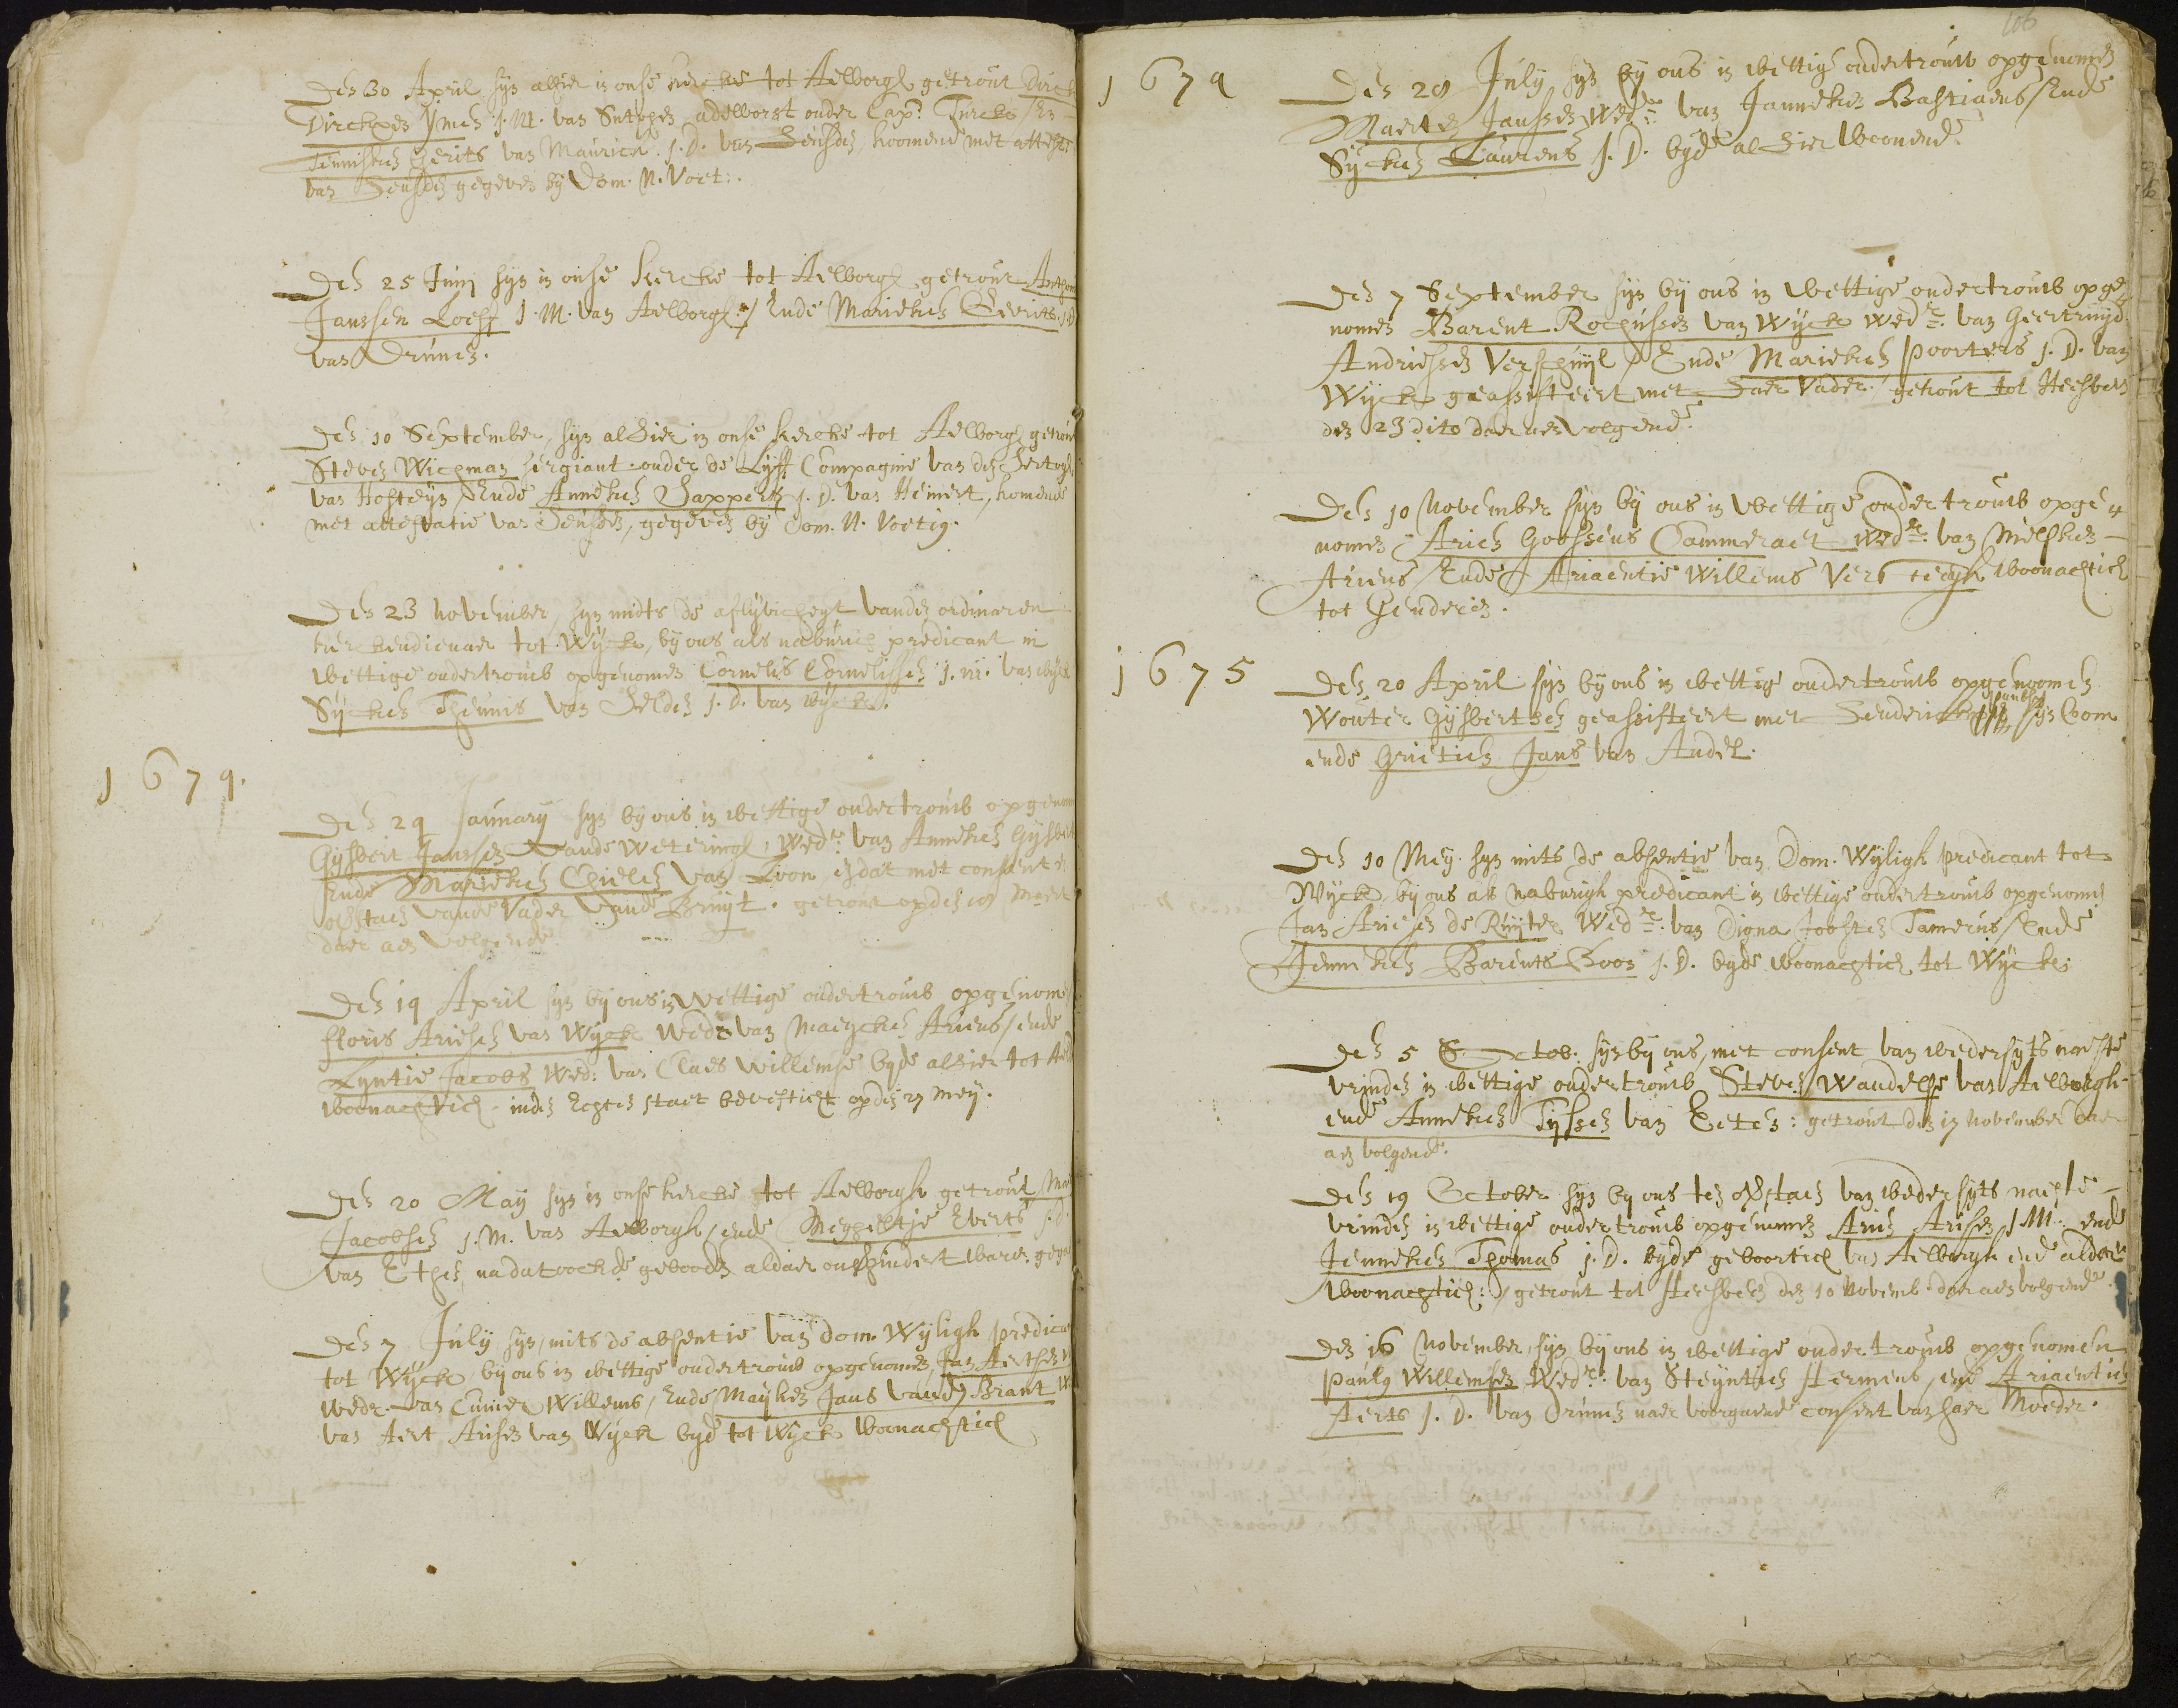 Den 30 April syn alhier in onse kercke tot Aelborgh getrout Dirck
Dirckxen Ymes J.M. van Sutphen adelborst onder Cap:
Teunisken Gerits van Maurick J.D. van Heusden, koomende met attest:
van Heusden gegeven by Dom. N. Voet:.
Den 25 Junij syn in onse kercke tot Aelborgh getrout
Janssen Loeff J.M. van Aelborgh / Ende Marieken Geerits J.D
van Drunen.
Den 10 September, syn alhier in onse kercke tot Aelborgh getrout
Steven Wichman sergiant onder de Lyff Compagnie van den Hertogh
van Hosteyn / Ende Anneken J.D. van Hemert, komende
met attestatie van Heusden, gegeven by Dom. N. Voetig.
Den 23 november, syn midts de aflyvicheyt vanden ordinaren
kerckendienaer tot Wyck, by ons als naburich predicant in
wettige ondertrouw opgenomen Cornelis Cornelissen J.M. van Wyck
Sycken Theunis van Helden J.D. van Wyck.
1674.
Den 24 January syn by ons in wettige ondertrouw opgenom
Gysbert Janssen vande Weteringh, Wedr van Anneken Gysbert
Ende Marieken Chielen van Loon, en dat met consent en
bystaen vande Vader vande Bruyt. getrout opden 18 Meert
daer aen volgende
Den 14 April syn by ons in wettige ondertrouw opgenomen
floris Ariesen van Wyck Wedr van Maeycken Ariens / ende
Lyntie Jacobs Wed: van Claes Willemse byde alhier tot
woonachtich. inden Echten staet bevesticht op den 27 Mey.
Den 20 May syn in onse kercke tot Aelborgh getrout
Jacobsen J.M. van Aelborgh / ende Mechteltje Everts J.D.
van Ethen, nadat oock de geboode aldaer onverhindert waren gega
Den 7 July syn, mits de absentie van Dom. Wyligh predica
tot Wyck, by ons in wettige ondertrouw opgenomen Jan Aertsen
wedr. van Cunier Willems / Ende Mayken Jans vanden Brant W
van Aert Arisen van Wyck byde tot Wyck Woonachtich
106
1674
Den 28 July syn by ons in wettige ondertrouw opgenomen
Maerten Janssen Wedr. van Janneken Bastiaens / Ende
Sycken Laurens J.D. byde alhier Woonende.
Den 7 September syn by ons in wettige ondertrouw opge
nomen Barent Rochussen van Wyck Wedr. van Geertruyd
Andriessen Verschuyl / Ende Marieken Poorters J.D. van
Wyck geassisteert met haer Vader. getrout tot Heesbeen
den 23 dito daer aen volgende.
Den 10 November syn by ons in wettige ondertrouw opge
nomen Arien Goossens Cammeraet Wedr. van
Ariens / Ende Ariaentie Willems Versteegh Woonachtich
tot Genderen.
1675
Den 20 April syn by ons in wettige ondertrouw opgenoomen
Wouter Gysbertsen geassisteert met Henderick Jansen syn Oom
ende Grietien Jans van Andel.
Den 10 Mey syn mits de absentie van Dom. Wyligh predicant tot
Wyck, by ons als naburigh predicant in wettige ondertrouw opgenomen
Jan Ariesen de Ruyter Wedr. van Digna Joosten Tamerus / Ende
Jenneken Barents Boor J.D. byde woonachtich tot Wyck.
Den 5 Octob: syn by ons, met consent van wedersyts naeste
vrinden in wettige ondertrouw Steven Wandelse van Aelborgh
ende Anneken Tyssen van Eeten: getrout den 17 November daer
aen volgende.
Den 19 October syn by ons ten bystaen van wedersyts naeste
vrinden in wettige ondertrouw opgenomen Arien Arisen J.M. ende
Jenneken Thomas J.D. byde geboortich van Aelborgh ende aldaer
Woonachtich: getrout tot Heesbeen den 10 Novemb. daer aen volgende.
Den 16 November, syn by ons in wettige ondertrouw opgenomen
Paulus Willemsen Wedr. van Steyntien Hermens, ende Ariaentien
Aerts J.D. van Drunen naer voorgaende consent van haer Moeder.